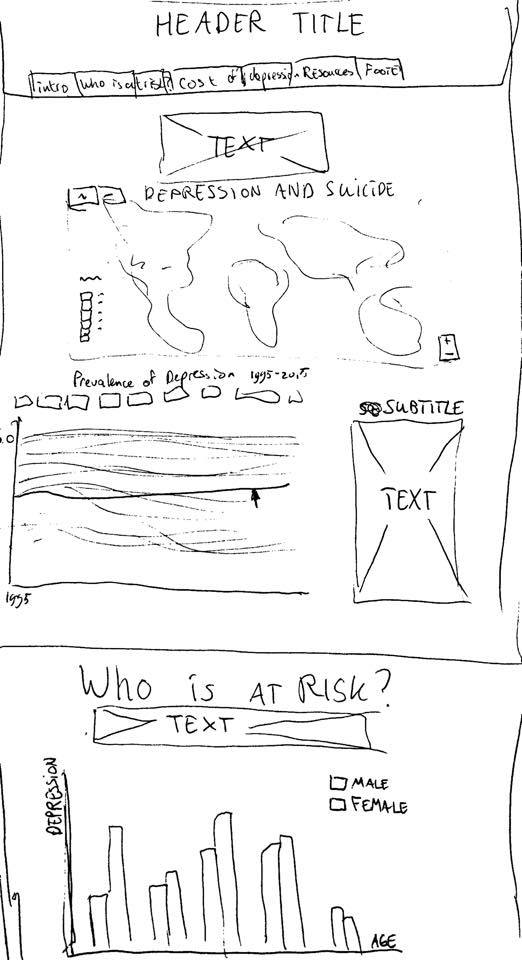 HEADER TITLE
intro Who is at risk? Cost of depression Resources Footer
TEXT
DEPRESSION AND SUICIDE
+
-
Prevalence of Depression 1995-2015
SUBTITLE
TEXT
1995
WHO IS AT RISK?
TEXT
MALE
FEMALE
DEPRESSION
AGE